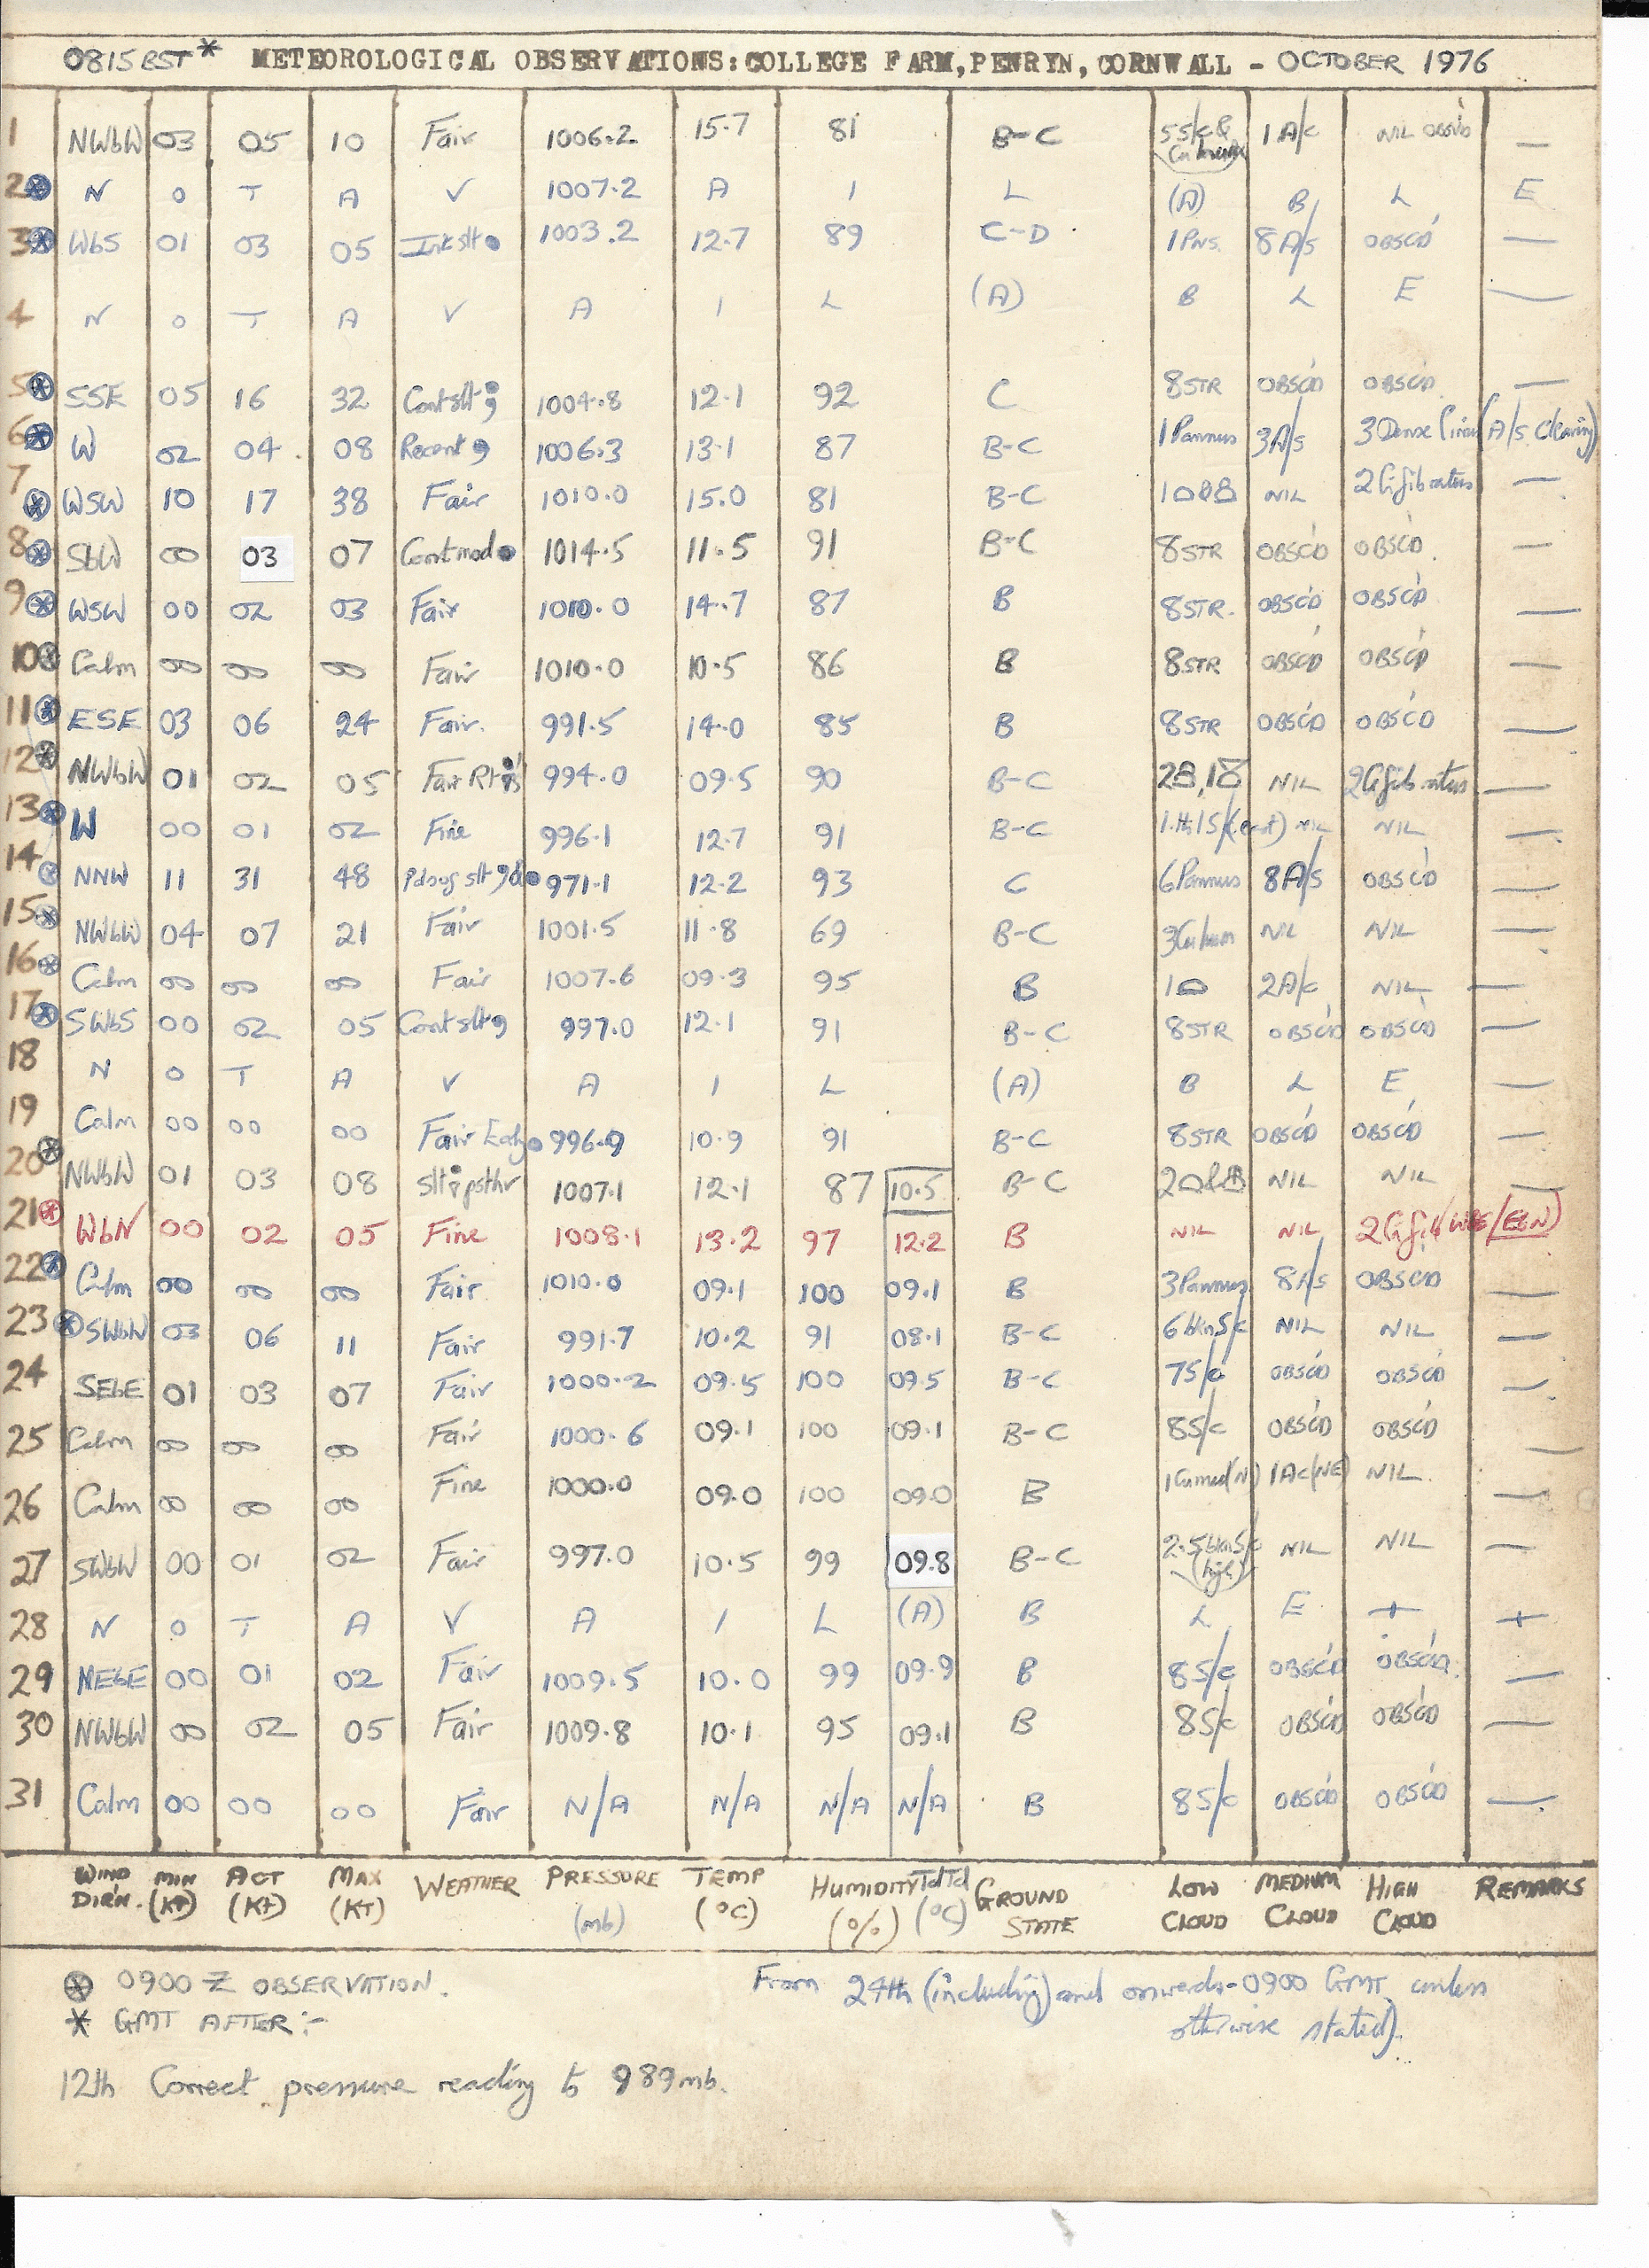 0815 BST * METEOROLOGICAL OBSERVATIONS: COLLEGE FARM, PENRYN, CORNWALL - OCTOBER 1976
1 NWbW 03 05 10 Fair 1006.2 15.7 81 B-C 5 S/c & 1 A/c NIL OBSVD —
2 N O T A V 1007.2 A I L (A) B L E
3 WbS 01 03 05 Int slt 1003.2 12.7 89 C-D 1 PNS. 8 A/S OBSC'D —
4 N O T A V A I L (A) B L E —
5 SSE 05 16 32 Cont slt 1004.8 12.1 92 C 8 STR OBSC'D OBSC'D —
6 W 02 04 08 Recent 1006.3 13.1 87 B-C 1 Pannus 3 A/S 3 Dense (A/s clearing)
7 WSW 10 17 38 Fair 1010.0 15.0 81 B-C 1 NIL 2 Ci fibratus —
8 SbW 00 03 07 Cont mod 1014.5 11.5 91 B-C 8 STR OBSC'D OBSC'D —
9 WSW 00 02 03 Fair 1010.0 14.7 87 B 8 STR. OBSC'D OBSC'D —
10 Calm 00 00 00 Fair 1010.0 10.5 86 B 8 STR OBSC'D OBSC'D —
11 ESE 03 06 24 Fair. 991.5 14.0 85 B 8 STR OBSC'D OBSC'D —
12 NWbW 01 02 05 Fair 994.0 09.5 90 B-C NIL 2 Ci fibratus —
13 W 00 01 02 Fine 996.1 12.7 91 B-C NIL NIL —
14 NNW 11 31 48 slt 971.1 12.2 93 C 6 Pannus 8 A/S OBSC'D —
15 NWbW 04 07 21 Fair 1001.5 11.8 69 B-C 3 Cu hum NIL NIL —
16 Calm 00 00 00 Fair 1007.6 09.3 95 B 1 2 A/c NIL —
17 SWbS 00 02 05 Cont slt 997.0 12.1 91 B-C 8 STR OBSC'D OBSC'D —
18 N O T A V A I L (A) B L E —
19 Calm 00 00 00 Fair 996.9 10.9 91 B-C 8 STR OBSC'D OBSC'D —
20 NWbW 01 03 08 slt 1007.1 12.1 87 10.5 B-C 2 NIL NIL —
21 WbN 00 02 05 Fine 1008.1 13.2 97 12.2 B NIL NIL 2 Ci fib
22 Calm 00 00 00 Fair 1010.0 09.1 100 09.1 B 3 Pannus 8 A/s OBSC'D —
23 SWbW 03 06 11 Fair 991.7 10.2 91 08.1 B-C 6 bkn S/c NIL NIL —
24 SEbE 01 03 07 Fair 1000.2 09.5 100 09.5 B-C 7 S/c OBSC'D OBSC'D —
25 Calm 00 00 00 Fair 1000.6 09.1 100 09.1 B-C 8 S/c OBSC'D OBSC'D —
26 Calm 00 00 00 Fine 1000.0 09.0 100 09.0 B 1 Cu med (N) 1 Ac (NE) NIL —
27 SWbW 00 01 02 Fair 997.0 10.5 99 09.8 B-C 2.5 bkn S/c (high) NIL NIL —
28 N O T A V A I L (A) B L E
29 NEbE 00 01 02 Fair 1009.5 10.0 99 09.9 B 8 S/c OBSC'D OBSC'D —
30 NWbW 00 02 05 Fair 1009.8 10.1 95 09.1 B 8 S/c OBSC'D OBSC'D —
31 Calm 00 00 00 Fair N/A N/A N/A N/A B 8 S/c OBSC'D OBSC'D —
WIND DIR'N. MIN (KT) ACT (KT) MAX (KT) WEATHER PRESSURE (mb) TEMP (°C) HUMIDITY (%) TdTd (°C) GROUND STATE LOW CLOUD MEDIUM CLOUD HIGH CLOUD REMARKS
⊛ 0900 Z OBSERVATION.
* GMT AFTER:-
From 24th (including) and onwards - 0900 GMT unless
otherwise stated).
12th Correct pressure reading to 989mb.